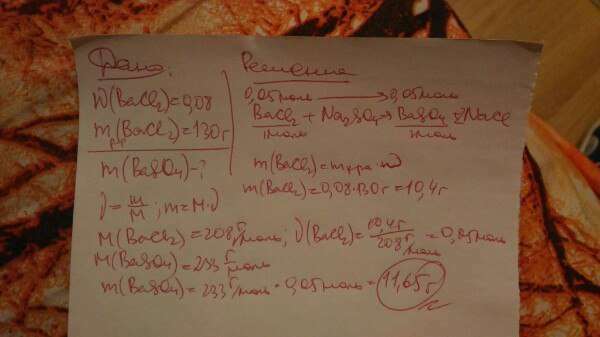 Дано:
W(BaCl2)=0,08
mр-р(BaCl2)=130г
m(BaSO4)-?
Решение
0,05моль → 0,05моль
BaCl2 + Na2SO4→ BaSO4 2NaCl
1моль 1моль
m(BaCl2)=mр-ра·W
m(BaCl2)=0,08·130г=10,4г
ν=m/M; m=M·ν
M(BaCl2)=208г/моль; ν(BaCl2)=10,4г/208г/моль=0,05моль
M(BaSO4)=233 г/моль
m(BaSO4)=233г/моль·0,05моль=11,65г